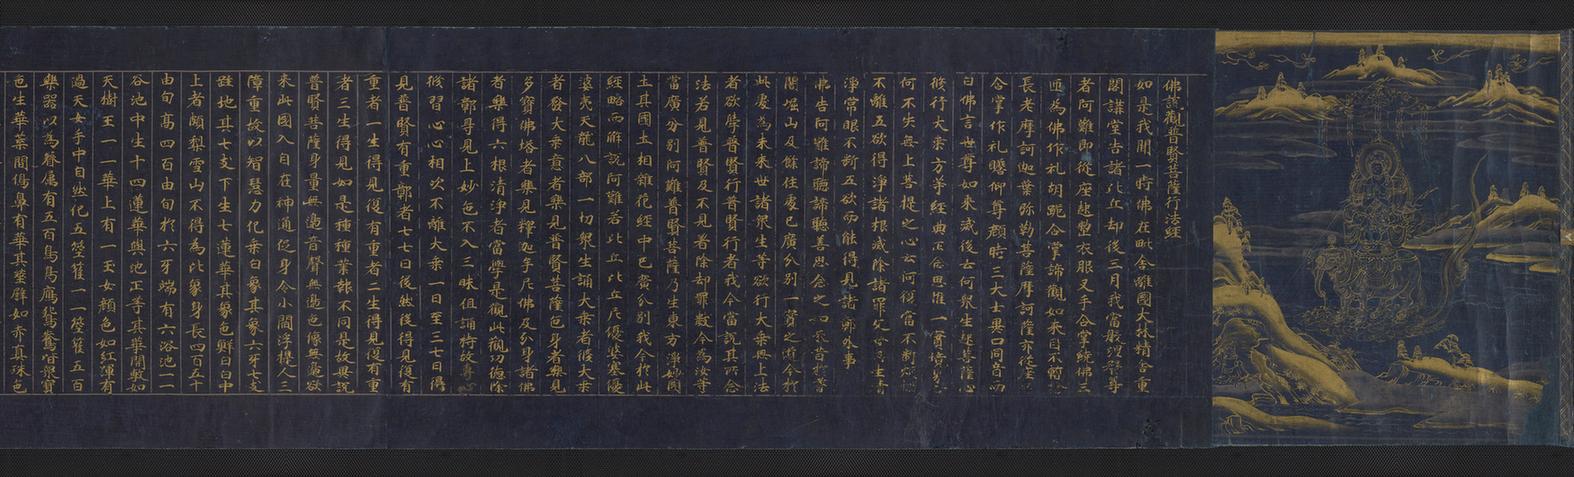 佛說觀普賢菩薩行法經
如是我聞一時佛在毗舍離國大林精舍重
閣講堂告諸比丘却後三月我當般涅槃尊
者阿難即從座起整衣服叉手合掌繞佛三
匝為佛作礼胡跪合掌諦觀如來目不暫
長老摩訶迦葉弥勒菩薩摩訶薩亦從座
合掌作礼瞻仰尊顏時三大士異口同音而
白佛言世尊如來滅後云何衆生起菩薩心
修行大乘方等經典正念思惟一實境界
何不失無上菩提之心云何復當不斷煩惱
不離五欲得淨諸根滅除諸罪父母所生清
淨常眼不斷五欲而能得見諸鄣外事
佛告阿難諦聽諦聽善思念之如來昔於耆
闍崛山及餘住處已廣分別一實之道今於
此處為未來世諸衆生等欲行大乘無上法
者欲學普賢行普賢行者我今當說其所念
法若見普賢及不見者除却罪數今為汝等
當廣分別阿難普賢菩薩乃生東方淨妙國
土其國土相雜花經中已廣分別我今於此
經略而解說阿難若比丘比丘尼優婆塞優
婆夷天龍八部一切衆生誦大乘者修大乘
者發大乘意者樂見普賢菩薩色身者樂見
多寶佛塔者樂見釋迦牟尼佛及分身諸佛
者樂得六根清淨者當學是觀此觀功德除
諸鄣㝵見上妙色不入三昧但誦持故專心
修習心心相次不離大乘一日至三七日得
見普賢有重鄣者七七日後然後得見復有
重者一生得見復有重者二生得見復有重
者三生得見如是種種業報不同是故異說
普賢菩薩身量無邊音聲無邊色像無邊欲
來此國入自在神通促身令小閻浮提人三
障重故以智慧力化乘白象其象六牙七支
跓地其七支下生七蓮華其象色鮮白白中
上者頗梨雪山不得為比象身長四百五十
由旬高四百由旬於六牙端有六浴池一一
谷池中生十四蓮華與池正等其華開敷如
天樹王一一華上有一玉女顏色如紅輝有
過天女手中自然化五箜篌一一箜篌五百
樂器以為眷属有五百鳥鳧鴈鴛鴦皆衆寶
色生華葉間象鼻有華其莖譬如赤真珠色